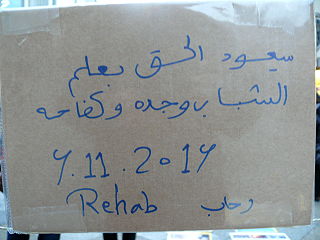 سيعود الحق بعلم
الشباب وجده وكفاحه
9.11.2014
Rehab رحاب